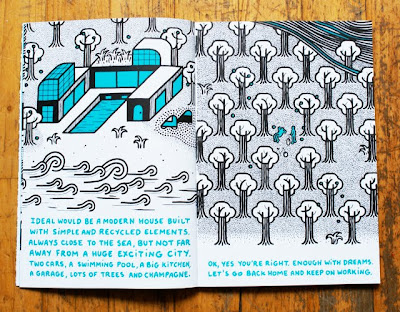 IDEAL WOULD BE A MODERN HOUSE BUILT
WITH SIMPLE AND RECYCLED ELEMENTS.
ALWAYS CLOSE TO THE SEA, BUT NOT FAR
AWAY FROM A HUGE EXCITING CITY.
TWO CARS, A SWIMMING POOL, A BIG KITCHEN,
A GARAGE, LOTS OF TREES AND CHAMPAGNE.
OK, YES YOU'RE RIGHT. ENOUGH WITH DREAMS.
LET'S GO BACK HOME AND KEEP ON WORKING.